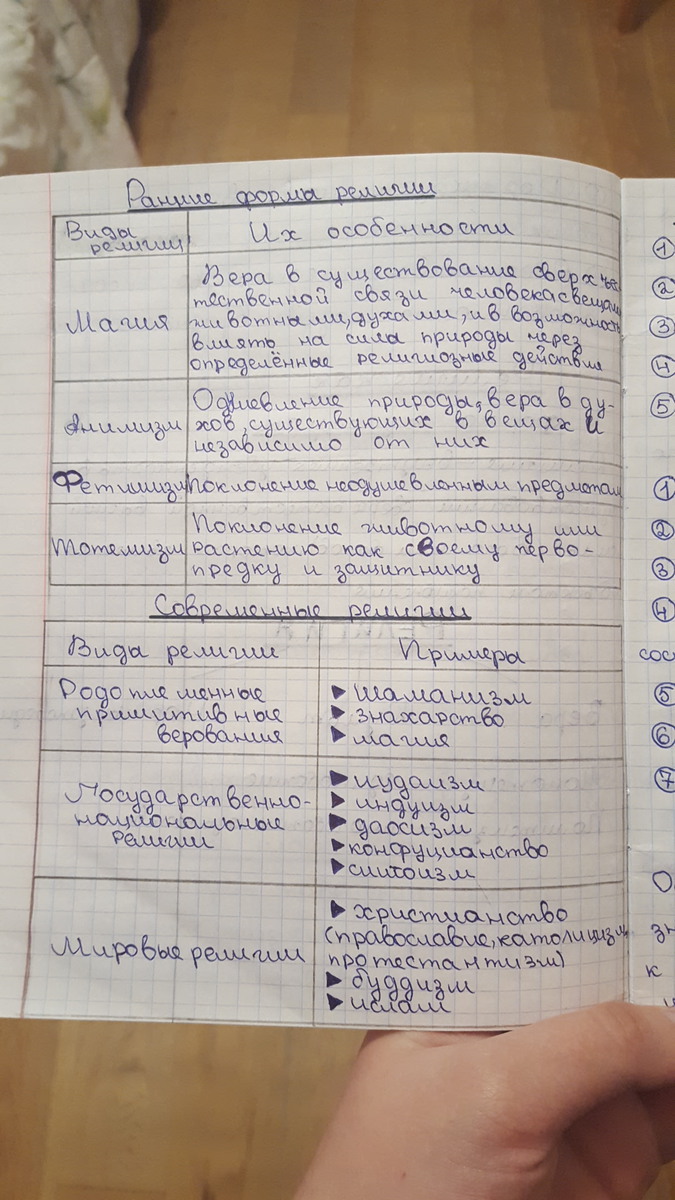 Ранние формы религии
Виды религии
Их особенности
Магия
Вера в существование сверхъес-
тественной связи человека с вещами,
животными, духами, и в возможность
влиять на силы природы через
определённые религиозные действия
Анимизм
Одушевление природы, вера в ду-
хов, существующих в вещах и
независимо от них
Фетишизм
Поклонение неодушевленным предметам
Тотемизм
Поклонение животному или
растению как своему перво-
предку и защитнику
Современные религии
Виды религии
Примеры
Родоплеменные
примитивные
верования
▶ шаманизм
▶ знахарство
▶ магия
Государственно-
национальные
религии
▶ иудаизм
▶ индуизм
▶ даосизм
▶ конфуцианство
▶ синтоизм
Мировые религии
▶ христианство
(православие, католицизм,
протестантизм)
▶ буддизм
▶ ислам
①
②
③
④
⑤
①
②
③
④
сос
⑤
⑥
⑦
О
зн
к